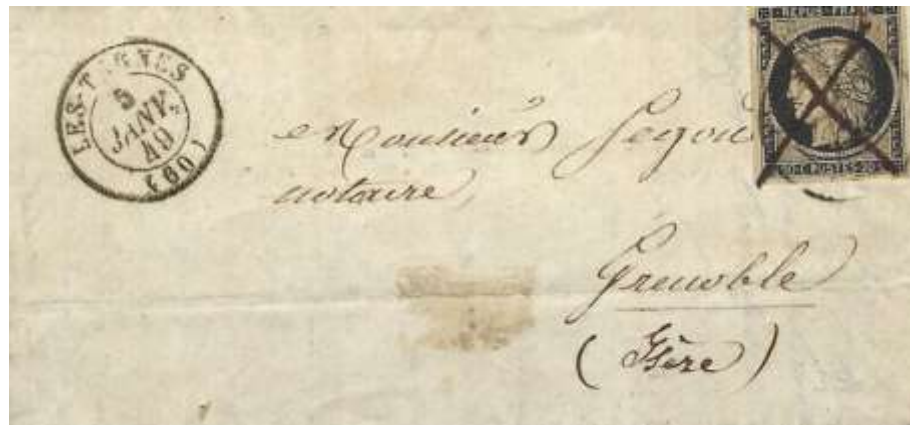 LES-TERNES
5
JANV.
49
(60)
REPUB. FRANC.
20 C POSTES 20 C
Monsieur
notaire
Grenoble
(Isère)